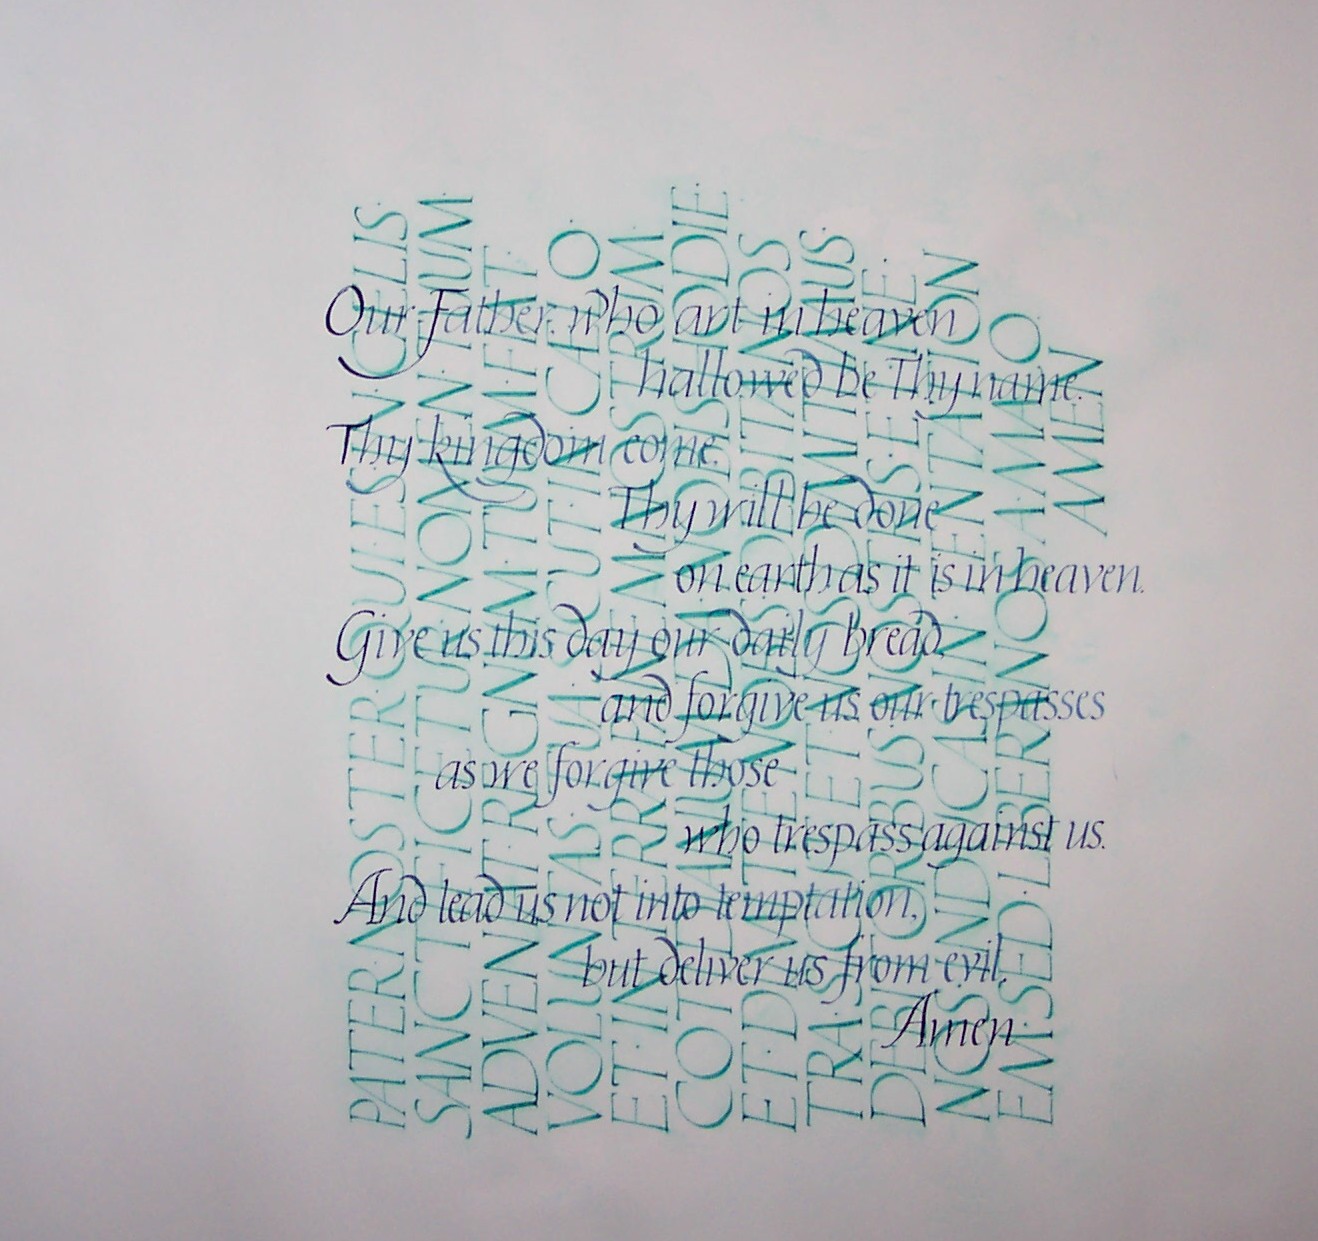 Our Father, who art in heaven
hallowed be Thy name.
Thy kingdom come.
Thy will be done
on earth as it is in heaven.
Give us this day our daily bread,
and forgive us our trespasses
as we forgive those
who trespass against us.
And lead us not into temptation,
but deliver us from evil.
Amen
PATER NOSTER QUI ES IN CÆLIS
SANCTIFICETUR NOMEN TUUM
ADVENIAT REGNUM TUUM FIAT
VOLUNTAS TUA SICUT IN CÆLO
ET IN TERRA PANEM NOSTRUM
HODIE
ET DIMITTE NOBIS DEBITA NOS
TRA SICUT ET NOS DIMITTIMUS
DEBITORIBUS NOSTRIS E NE
NOS INDUCAS IN TENTATION
EM SED LIBERA NOS A MALO
AMEN